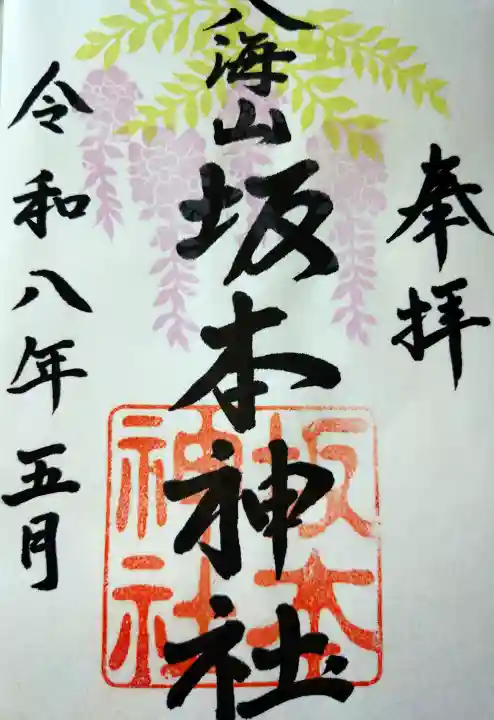 奉拝
八海山
坂本神社
坂本
神社
令和八年五月